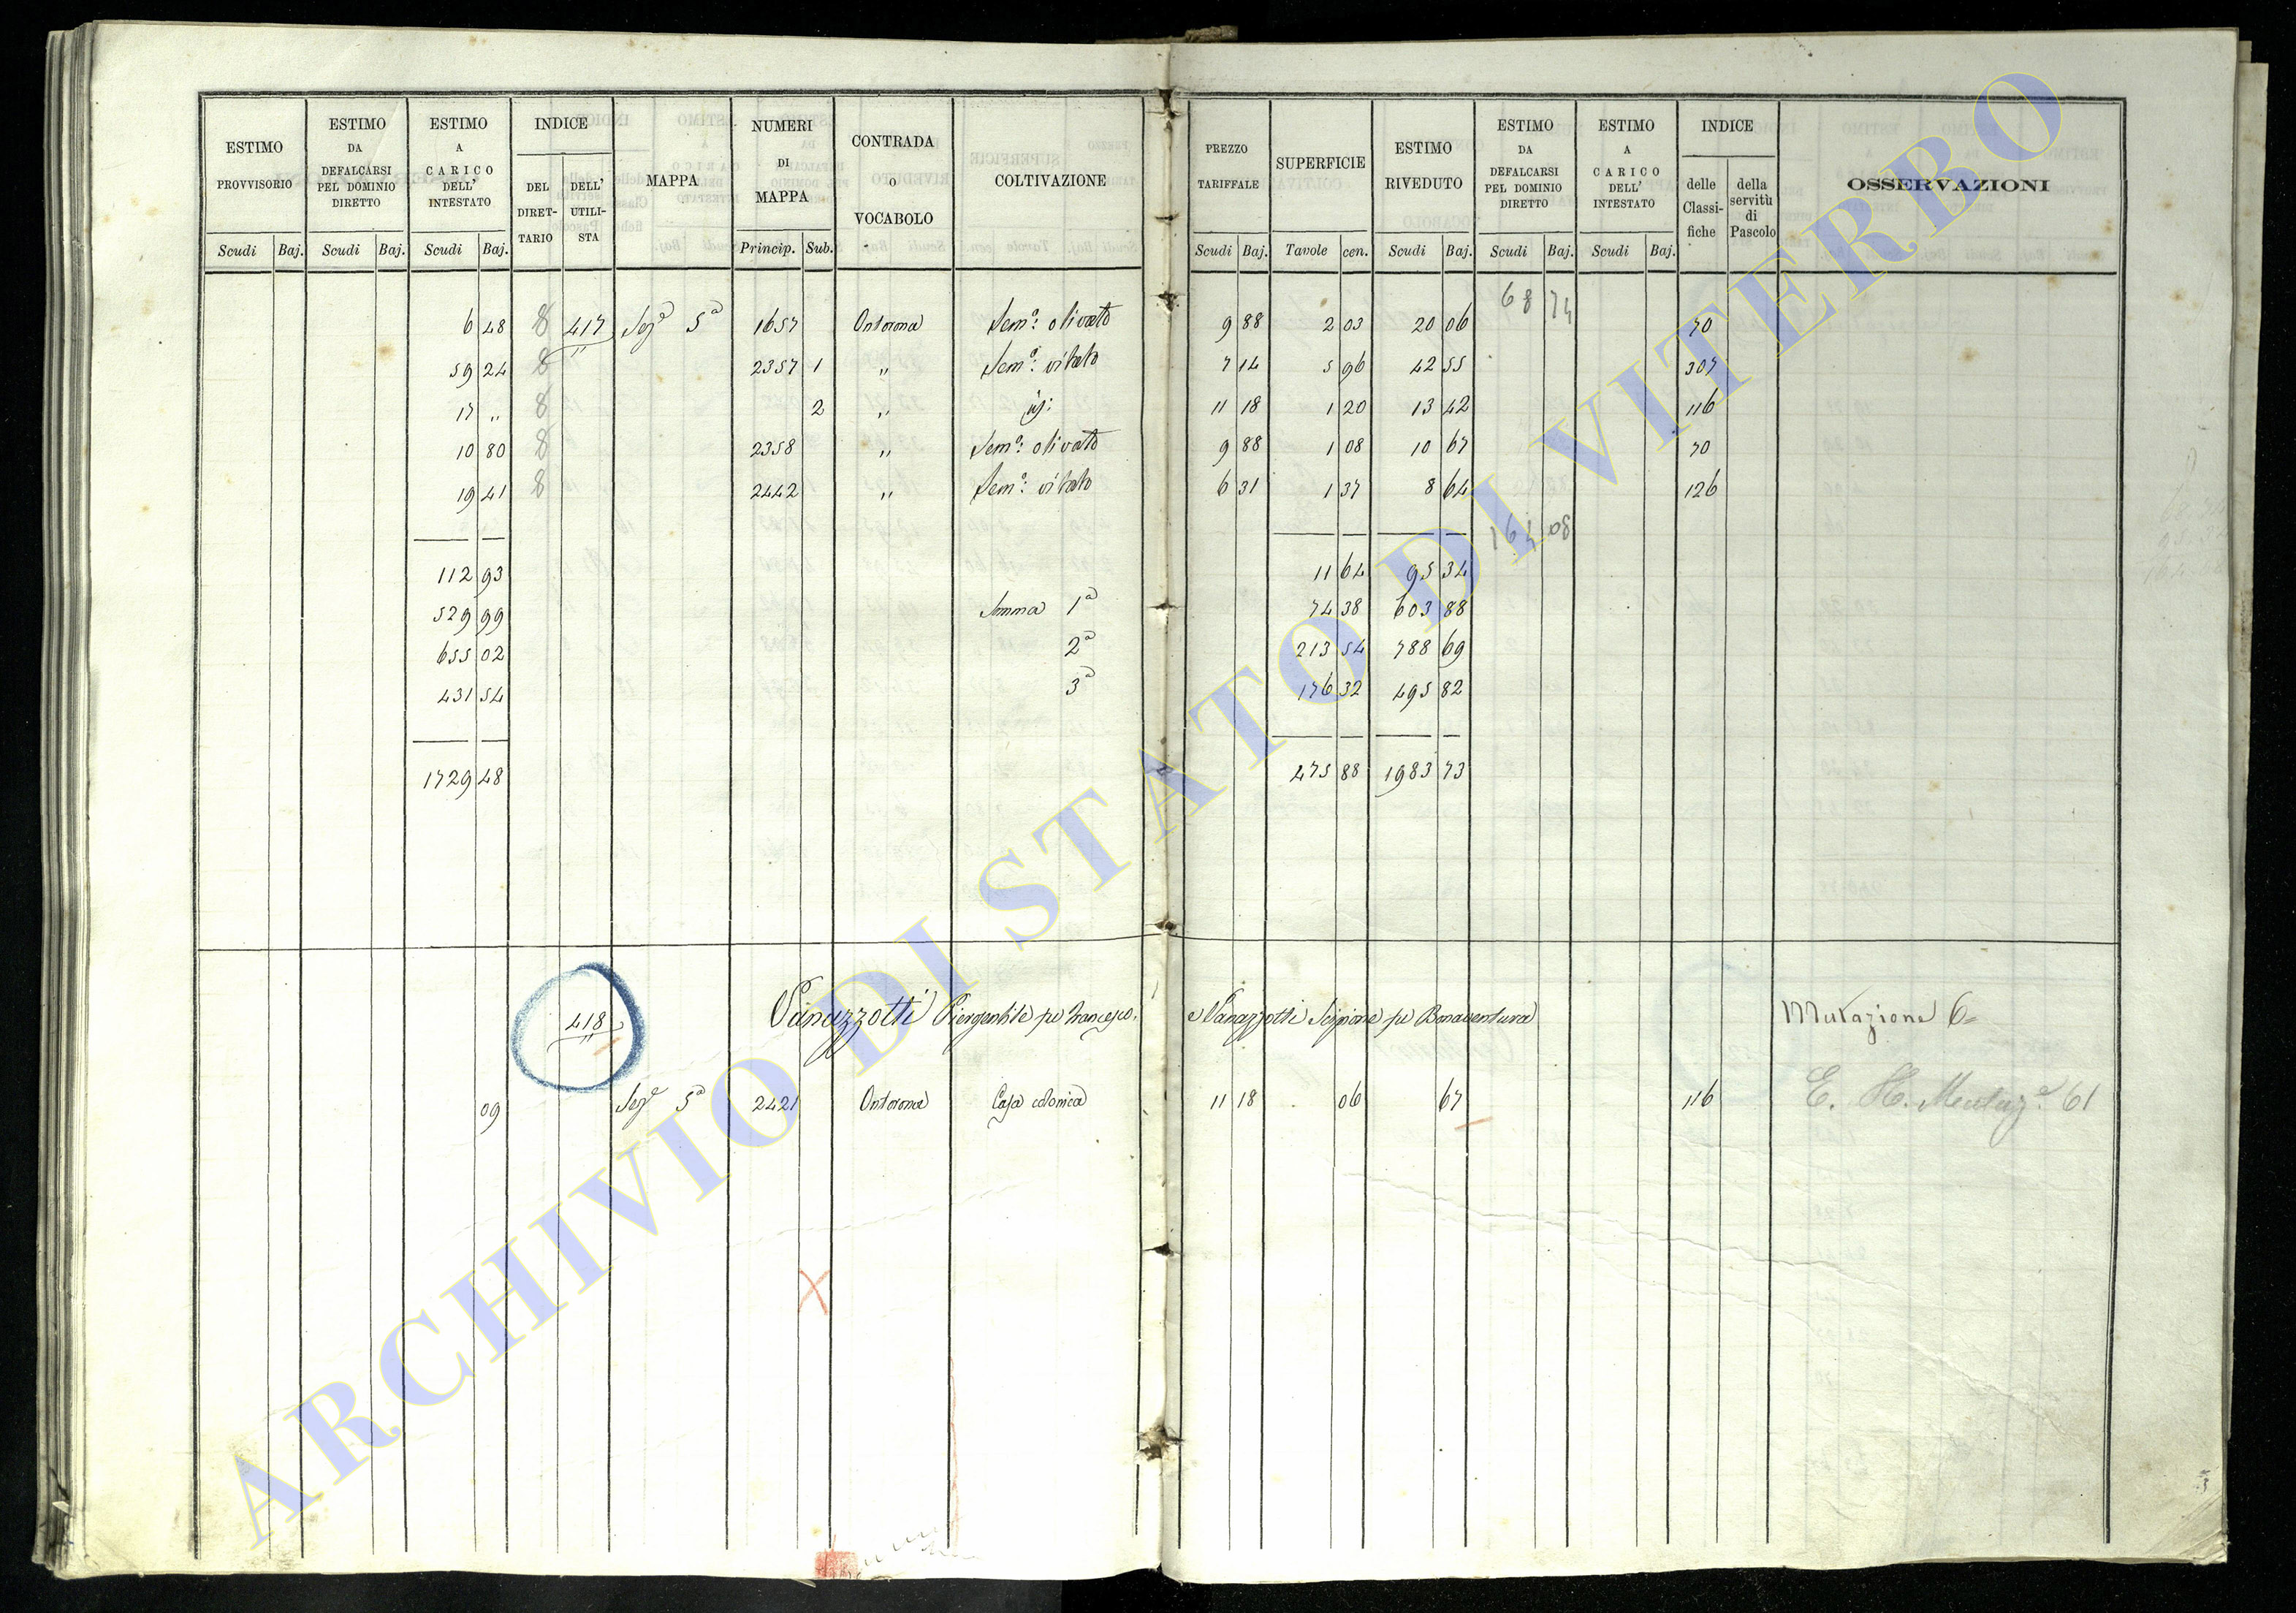 ESTIMO PROVVISORIO | ESTIMO DA DEFALCARSI PEL DOMINIO DIRETTO | ESTIMO A CARICO DELL' INTESTATO | INDICE | MAPPA | NUMERI DI MAPPA | CONTRADA O VOCABOLO | COLTIVAZIONE | PREZZO TARIFFALE | SUPERFICIE | ESTIMO RIVEDUTO | ESTIMO DA DEFALCARSI PEL DOMINIO DIRETTO | ESTIMO A CARICO DELL' INTESTATO | INDICE | OSSERVAZIONI
DEL DIRET-TARIO | DELL' UTILI-STA | delle Classi-fiche | della servitù di Pascolo
Scudi | Baj. | Scudi | Baj. | Scudi | Baj. | Princip. | Sub. | Scudi | Baj. | Tavole | cen. | Scudi | Baj. | Scudi | Baj. | Scudi | Baj.
68 74
6 48 | 8 | 417 | Sezе 5a | 1657 | Semo: olivato | 9 88 | 2 03 | 20 06 | 70
59 24 | 8 | 2357 | 1 | " | Semo: vitato | 7 14 | 5 96 | 42 55 | 307
17 " | 8 | 2 | " | 11 18 | 1 20 | 13 42 | 116
10 80 | 8 | 2358 | " | Semo: olivato | 9 88 | 1 08 | 10 67 | 70
19 41 | 8 | 2442 | " | Semo: vitato | 6 31 | 1 37 | 8 64 | 126
164 08
112 93 | 11 64 | 95 34
529 99 | Somma 1a | 74 38 | 603 88
655 02 | 2a | 213 54 | 788 69
431 54 | 3a | 176 32 | 495 82
1729 48 | 475 88 | 1983 73
418 | Panazzotti Piergentile fu Francesco. e Panazzotti Scipione fu Bonaventura | Mutazione 6
09 | Seze 5a | 2421 | Casa colonica | 11 18 | . 06 | 67 | 116 | E. H. Mutaz.e 61
ARCHIVIO DI STATO DI VITERBO